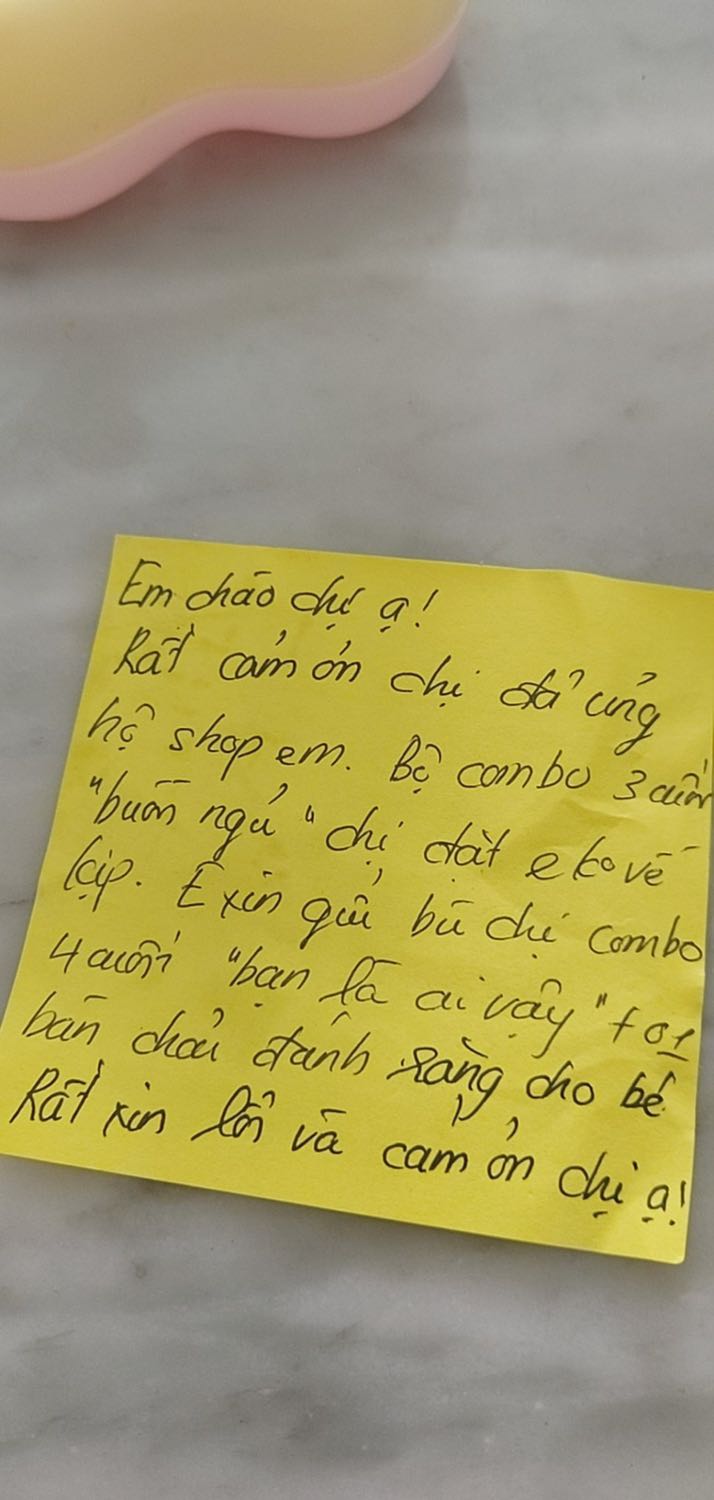 Em chào chị ạ!
Rất cảm ơn chị đã ủng
hộ shop em. Bộ combo 3 cuốn
"buồn ngủ" chị đặt e ko về
kịp. E xin gửi bù chị combo
4 cuốn "bạn là ai vậy" + 01
bàn chải đánh răng cho bé
Rất xin lỗi và cảm ơn chị ạ!